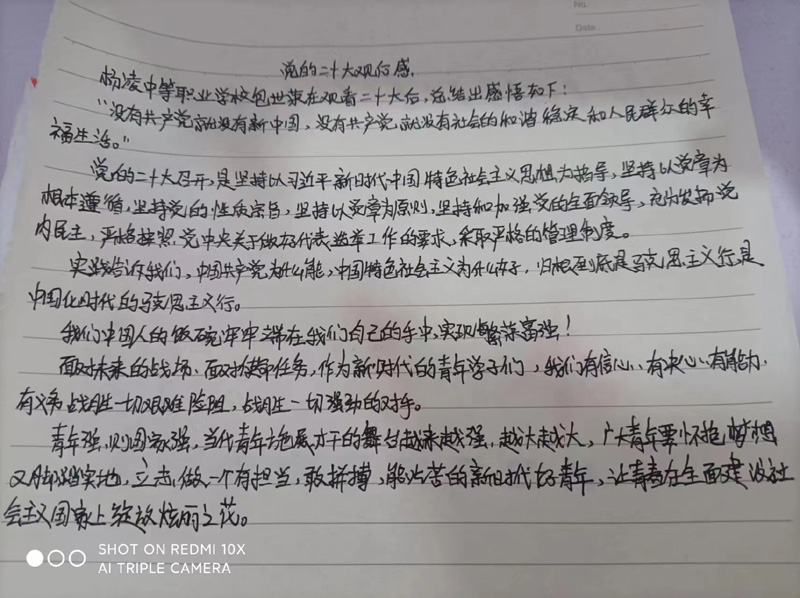 No.
Date
党的二十大观后感.
杨凌中等职业学校包世荣在观看二十大后,总结出感悟如下:
"没有共产党就没有新中国,没有共产党就没有社会的和谐稳定和人民群众的幸
福生活。"
党的二十大召开,是坚持以习近平新时代中国特色社会主义思想为指导,坚持以党章为
根本遵循,坚持党的性质宗旨,坚持以党章为原则,坚持和加强党的全面领导,充分发扬党
内民主,严格按照党中央关于做好代表选举工作的要求,采取严格的管理制度。
实践告诉我们,中国共产党为什么能,中国特色社会主义为什么好,归根到底是马克思主义行,是
中国化时代的马克思主义行。
我们中国人的饭碗牢牢端在我们自己的手中,实现繁荣富强!
面对未来的战场、面对使命任务,作为新时代的青年学子们,我们有信心、有决心、有能力、
有义务战胜一切艰难险阻,战胜一切强劲的对手。
青年强,则国家强,当代青年施展才干的舞台越来越强,越大越大,广大青年要怀抱梦想
又脚踏实地,立志做一个有担当,敢拼搏,能吃苦的新时代好青年,让青春在全面建设社
会主义国家上绽放炫丽之花。
SHOT ON REDMI 10X
AI TRIPLE CAMERA